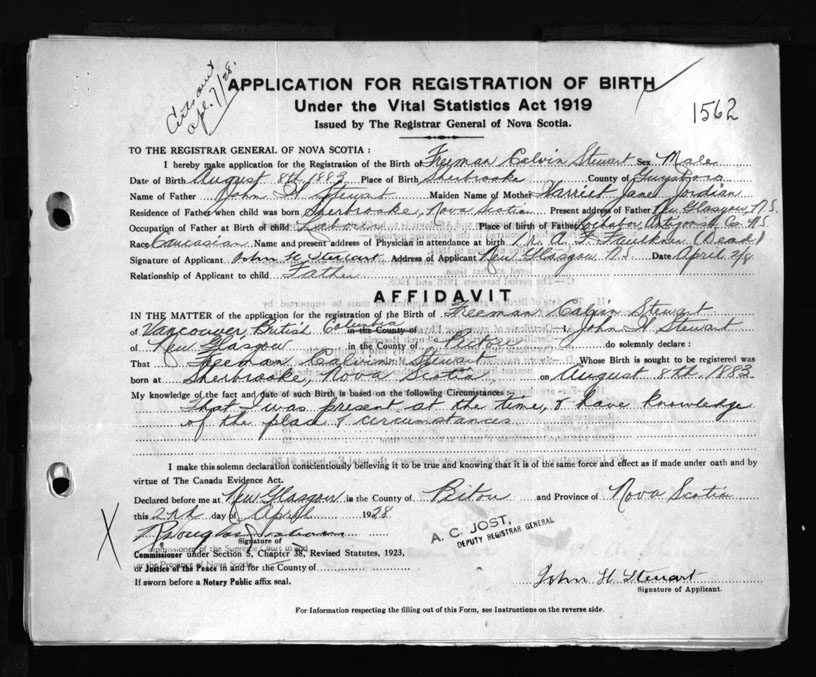 Cert sent
Apl. 7/28.
APPLICATION FOR REGISTRATION OF BIRTH
Under the Vital Statistics Act 1919
Issued by The Registrar General of Nova Scotia.
1562
TO THE REGISTRAR GENERAL OF NOVA SCOTIA :
I hereby make application for the Registration of the Birth of Freeman Calvin Stewart Sex Male
Date of Birth August 8th 1883 Place of Birth Sherbrooke County of Guysboro
Name of Father John H Stewart Maiden Name of Mother Harriet Jane Jordian
Residence of Father when child was born Sherbrooke, Nova Scotia Present address of Father New Glasgow, N.S.
Occupation of Father at Birth of child Laborer Place of birth of Father Lochaber Antigonish Co. N.S.
Race Caucasian Name and present address of Physician in attendance at birth Dr. A. F. Faulkner (Dead)
Signature of Applicant John H Stewart Address of Applicant New Glasgow N.S. Date April 2/8
Relationship of Applicant to child Father
AFFIDAVIT
IN THE MATTER of the application for the registration of the Birth of Freeman Calvin Stewart
of Vancouver, British Columbia in the County of I, John H Stewart
of New Glasgow in the County of Pictou do solemnly declare :
That Freeman Calvin Stewart Whose Birth is sought to be registered was
born at Sherbrooke, Nova Scotia on August 8th. 1883.
My knowledge of the fact and date of such Birth is based on the following Circumstances :
That I was present at the time, & have knowledge
of the place & circumstances
I make this solemn declaration conscientiously believing it to be true and knowing that it is of the same force and effect as if made under oath and by
virtue of The Canada Evidence Act.
Declared before me at New Glasgow in the County of Pictou and Province of Nova Scotia
this 2nd day of April 1928
A. C. JOST,
DEPUTY REGISTRAR GENERAL
X
Douglas
Signature of
Commissioner of the Supreme Court in and
Commissioner under Section 5, Chapter 38, Revised Statutes, 1923,
for the Province of Nova Scotia
or Justice of the Peace in and for the County of
If sworn before a Notary Public affix seal.
John H Stewart
Signature of Applicant.
For Information respecting the filling out of this Form, see Instructions on the reverse side.